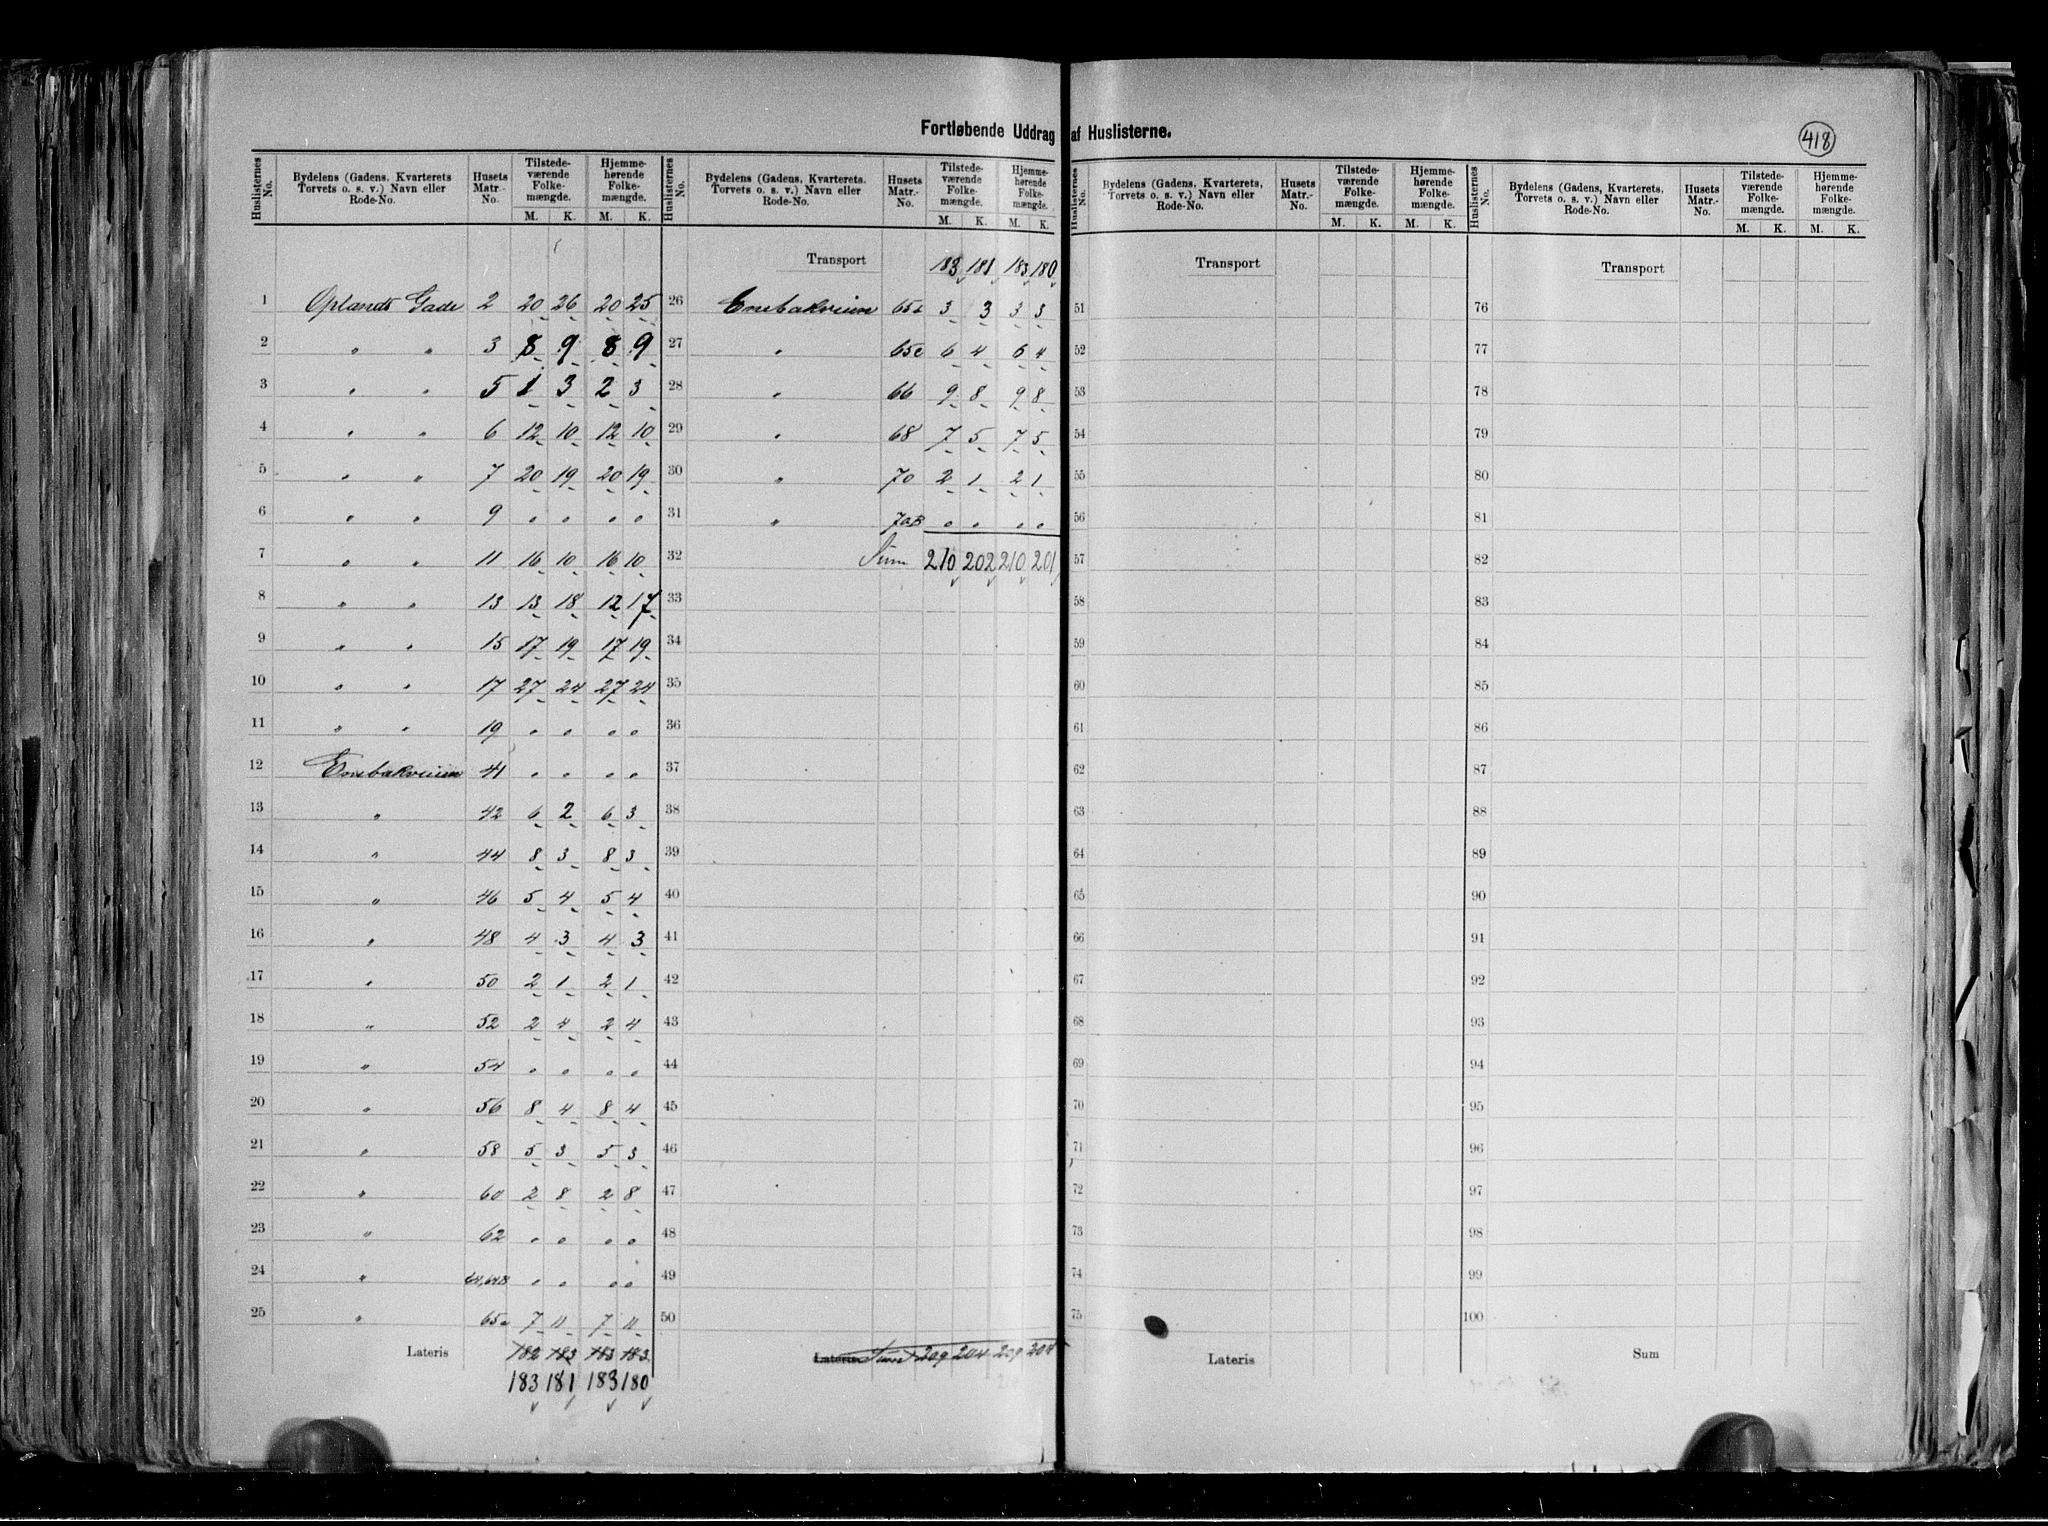 Fortløbende Uddrag af Huslisterne.
418
Huslisternes No. | Bydelens (Gadens, Kvarterets, Torvets o. s. v.) Navn eller Rode-No. | Husets Matr.-No. | Tilstedeværende Folkemængde. M. K. | Hjemmehørende Folkemængde. M. K.
1 Oplands Gade 2 20 26 20 25
2 " " 3 8 9 8 9
3 " " 5 1 3 2 3
4 " " 6 12 10 12 10
5 " " 7 20 19 20 19
6 " " 9 " " " "
7 " " 11 16 10 16 10
8 " " 13 13 18 12 17
9 " " 15 17 19 17 19
10 " " 17 27 24 27 24
11 " " 19 " " " "
12 Enebakveien 41 " " " "
13 " 42 6 2 6 3
14 " 44 8 3 8 3
15 " 46 5 4 5 4
16 " 48 4 3 4 3
17 " 50 2 1 2 1
18 " 52 2 4 2 4
19 " 54 " " " "
20 " 56 8 4 8 4
21 " 58 5 3 5 3
22 " 60 2 8 2 8
23 " 62 " " " "
24 " 64,64B " " " "
25 " 65a 7 11 7 11
Lateris 182 183 183 183
183 181 183 180
Huslisternes No. | Bydelens (Gadens, Kvarterets, Torvets o. s. v.) Navn eller Rode-No. | Husets Matr.-No. | Tilstedeværende Folkemængde. M. K. | Hjemmehørende Folkemængde. M. K.
Transport 183 181 183 180
26 Enebakveien 65b 3 3 3 3
27 " 65c 6 4 6 4
28 " 66 9 8 9 8
29 " 68 7 5 7 5
30 " 70 2 1 2 1
31 " 70B " " " "
32 Sum 210 202 210 201
33
34
35
36
37
38
39
40
41
42
43
44
45
46
47
48
49
50
Lateris Sum 209 204 209 204
Huslisternes No. | Bydelens (Gadens, Kvarterets, Torvets o. s. v.) Navn eller Rode-No. | Husets Matr.-No. | Tilstedeværende Folkemængde. M. K. | Hjemmehørende Folkemængde. M. K.
Transport
51
52
53
54
55
56
57
58
59
60
61
62
63
64
65
66
67
68
69
70
71
72
73
74
75
Lateris
Huslisternes No. | Bydelens (Gadens, Kvarterets, Torvets o. s. v.) Navn eller Rode-No. | Husets Matr.-No. | Tilstedeværende Folkemængde. M. K. | Hjemmehørende Folkemængde. M. K.
Transport
76
77
78
79
80
81
82
83
84
85
86
87
88
89
90
91
92
93
94
95
96
97
98
99
100
Sum